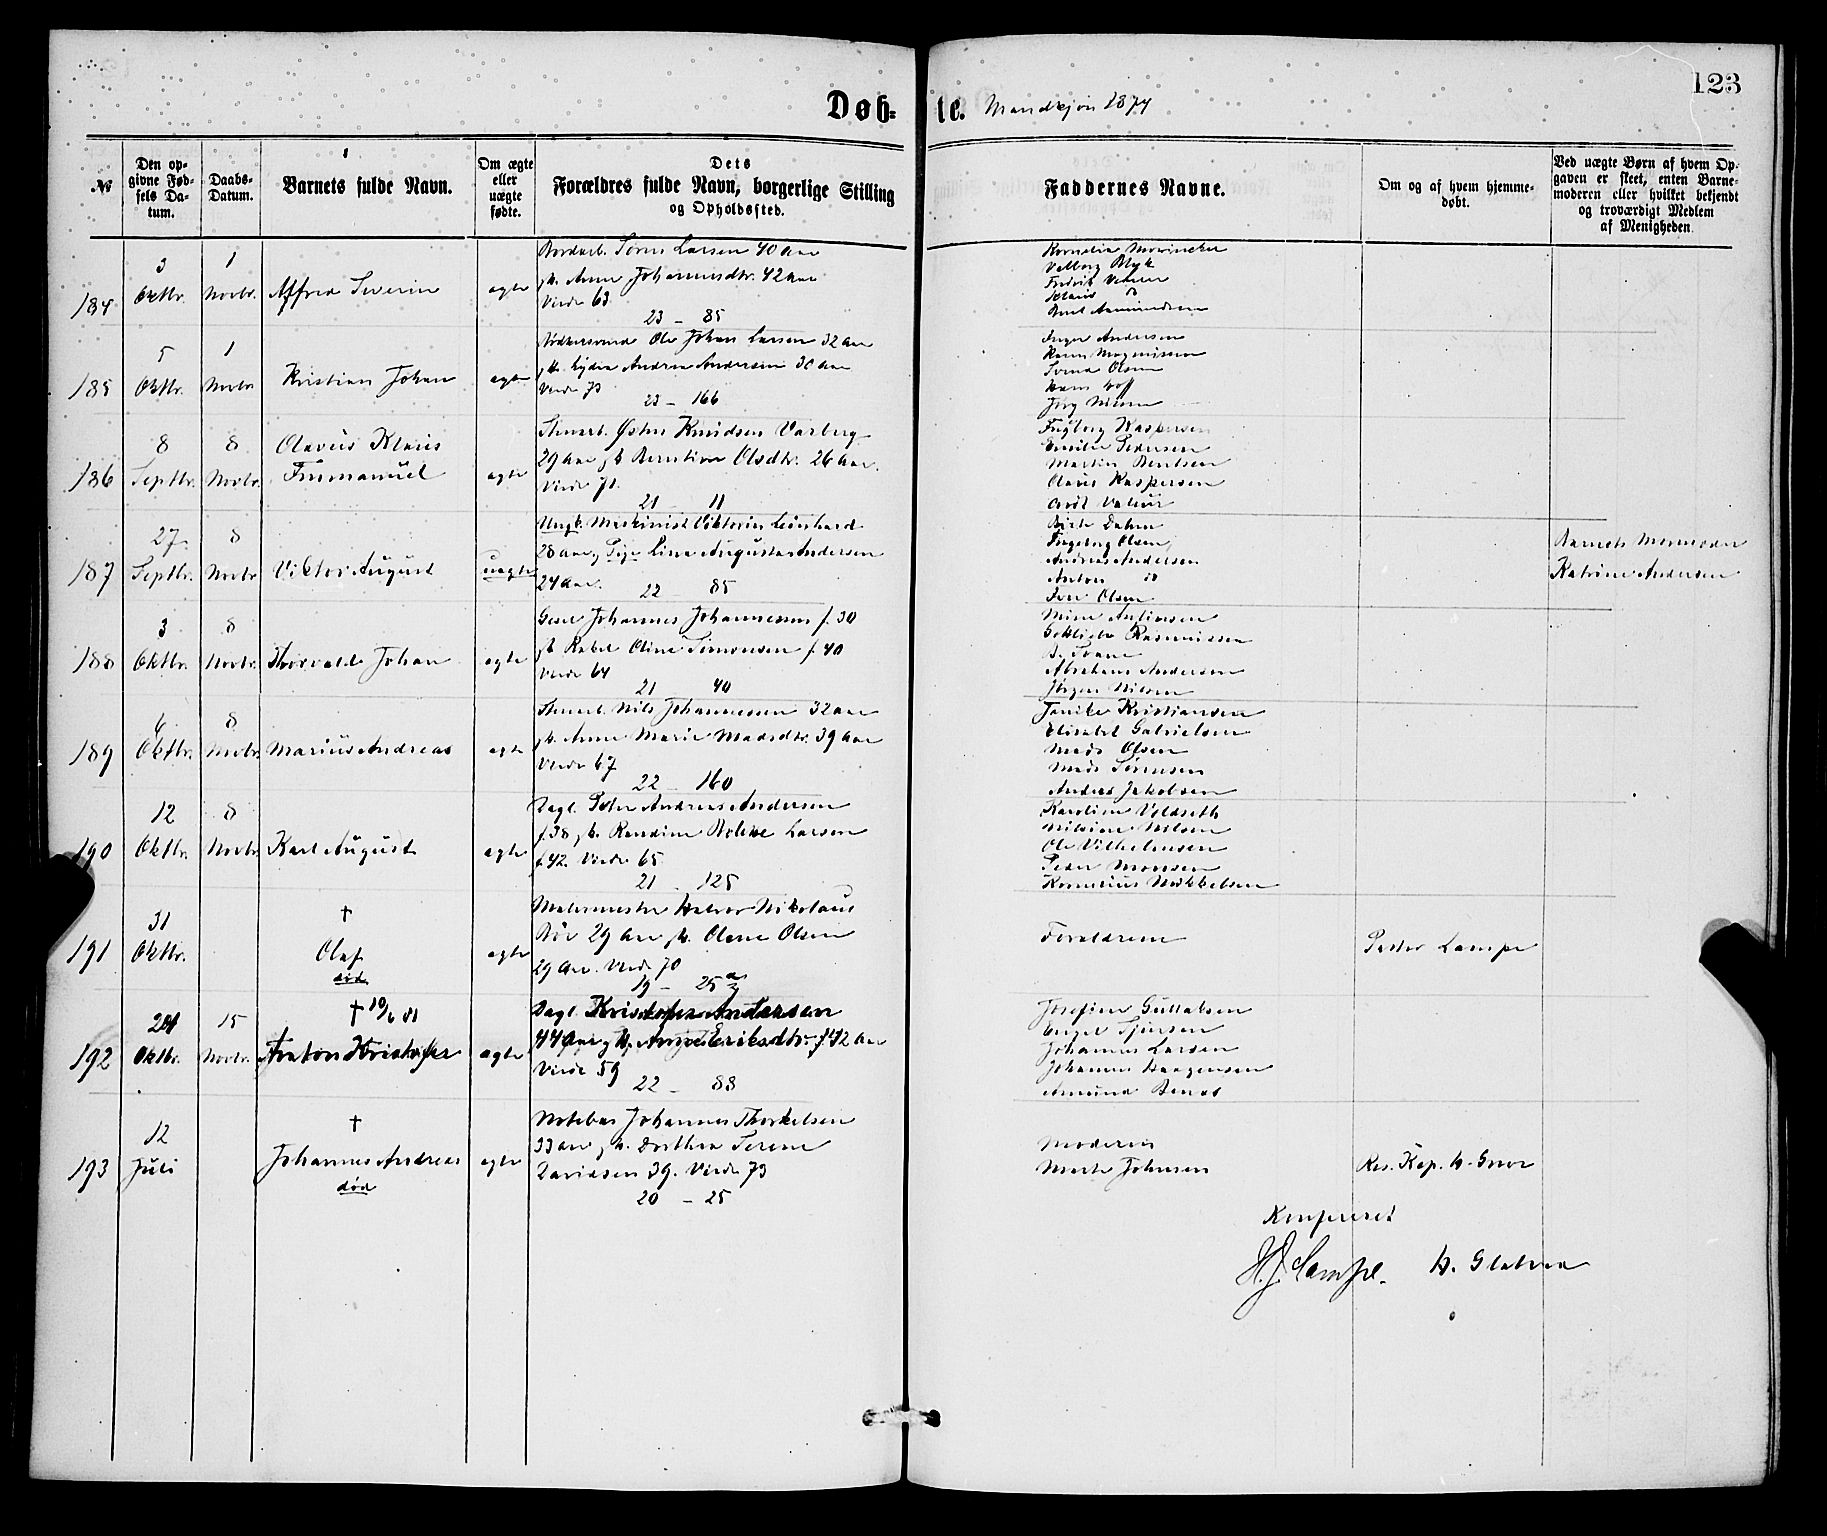 123
Døb-
te. Mandkjøn 1874
№
Den op-
givne Fød-
sels Da-
tum.
Daabs-
Datum.
Barnets fulde Navn.
Om ægte
eller
uægte
fødte.
Dets
Forældres fulde Navn, borgerlige Stilling
og Opholdssted.
Faddernes Navne.
Om og af hvem hjemme-
døbt.
Ved uægte Børn af hvem Op-
gaven er skeet, enten Barne-
moderen eller hvilket bekjendt
og troværdigt Medlem
af Menigheden.
184
3
Oktbr.
1
Novbr.
Alfred Severin
ægte
Søren Larsen 40 Aar
Anne Johannesdtr. 42 Aar
Viede 63
23 – 85
Valborg
185
5
Oktbr.
1
Novbr
Kristian Johan
ægte
Ole Johan Larsen 32 Aar
Lydia Andrea Andersen 30 Aar
Viede 73
23 – 166
Inger Andersen
Karen Magnussen
Svend Olsen
Hans Hoff
186
8
Septbr.
8
Novbr.
Olavus Klaus
Emmanuel
ægte
Knudsen Varberg
29 Aar Berntine Olsdtr. 26 Aar.
Viede 71.
21 11
Ingborg Kaspersen
Emilie Pedersen
Martin Bentsen
Olaus Kaspersen
187
27
Septbr.
8
Novbr.
Viktor August
uægte
Ungk. Maskinist Viktorin Leonhard
28 Aar, Pige Lina Augusta Andersen
24 Aar.
22 85
Ingeborg Olsen
Andreas Andersen
Anton do
Iver Olsen
Barnets Mormoder
Katrine Andersen
188
3
Oktbr.
8
Novbr.
Thorvald Johan
ægte
Johannes Johannessen f. 30
Rakel Oline Simonsen f. 40
Viede 64
21 40
Rasmussen
Abraham Andersen
Jörgen Nilsen
189
6
Oktbr.
8
Novbr.
Marius Andreas
ægte
Nils Johannessen 32 Aar
Anne Marie Madsdtr. 39 Aar
Viede 67
22 – 160
Janike Kristiansen
Elisabet Gabrielsen
Mads Olsen
Mads Sørensen
Andreas Jakobsen
190
12
Oktbr.
8
Novbr.
Karl August
ægte
Dagl. Peter Andreas Andersen
f. 38 Randine Larsen
f. 42. Viede 65
21 – 125
Karoline Voldseth
Nilsine Nilsen
Ole Vilhelmsen
Peder Monsen
Kornelius Mikkelsen
191
31
Oktbr.
†
Olaf
død
ægte
Malermester Halvor Nikolaus
29 Aar Olene Olsen
29 Aar. Viede 70
19 – 25
Forældrene
Pastor Lampe
192
24
Oktbr.
15
Novbr.
† 10/6 81
Anton Kristoffer
ægte
Dagl. Kristoffer Andersen
44 Aar Anne Eriksdtr. 42 Aar
Viede 59
22 – 88
Josefine Gullaksen
Johannes Larsen
Johannes Haagensen
Amund
193
12
Juli
†
Johannes Andreas
død
ægte
Johannes Thorkelsen
33 Aar Dorthea Serene
Davidsen 39. Viede 73
20 – 25
Moderen
Marte Johnsen
Res. Kap.
Konfereret
H. J. Lampe.